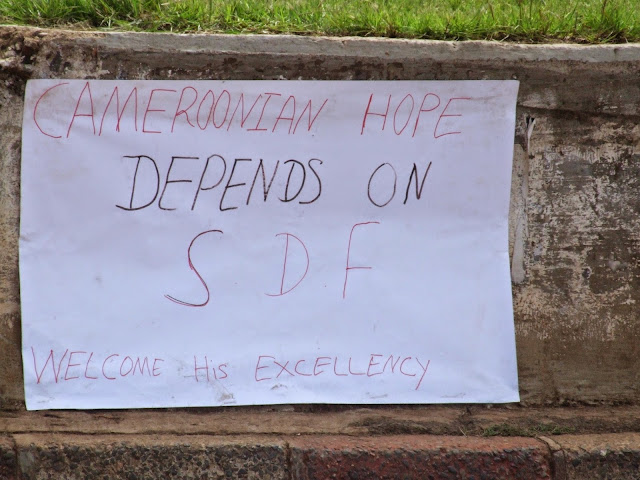 CAMEROONIAN HOPE
DEPENDS ON
SDF
WELCOME His EXCELLENCY